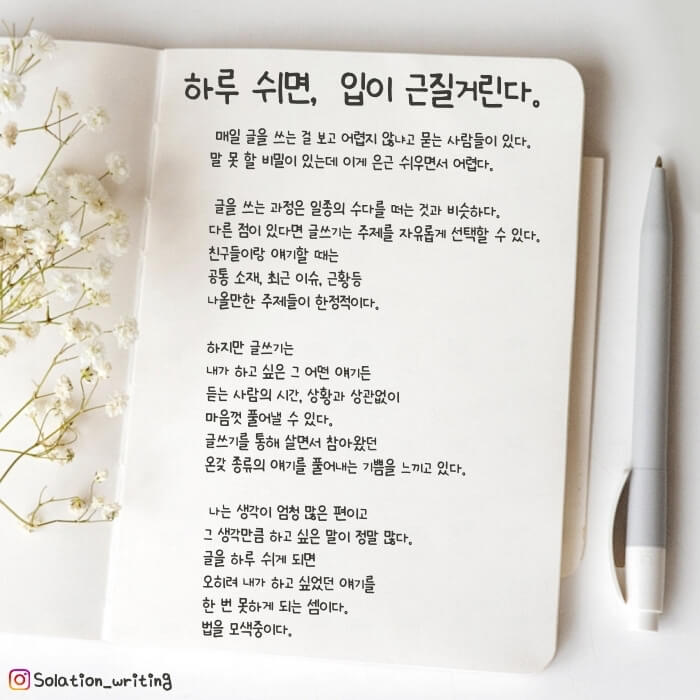 하루 쉬면, 입이 근질거린다.
매일 글을 쓰는 걸 보고 어렵지 않냐고 묻는 사람들이 있다.
말 못 할 비밀이 있는데 이게 은근 쉬우면서 어렵다.
글을 쓰는 과정은 일종의 수다를 떠는 것과 비슷하다.
다른 점이 있다면 글쓰기는 주제를 자유롭게 선택할 수 있다.
친구들이랑 얘기할 때는
공통 소재, 최근 이슈, 근황등
나올만한 주제들이 한정적이다.
하지만 글쓰기는
내가 하고 싶은 그 어떤 얘기든
듣는 사람의 시간, 상황과 상관없이
마음껏 풀어낼 수 있다.
글쓰기를 통해 살면서 참아왔던
온갖 종류의 얘기를 풀어내는 기쁨을 느끼고 있다.
나는 생각이 엄청 많은 편이고
그 생각만큼 하고 싶은 말이 정말 많다.
글을 하루 쉬게 되면
오히려 내가 하고 싶었던 얘기를
한 번 못하게 되는 셈이다.
법을 모색중이다.
@Solation_writing